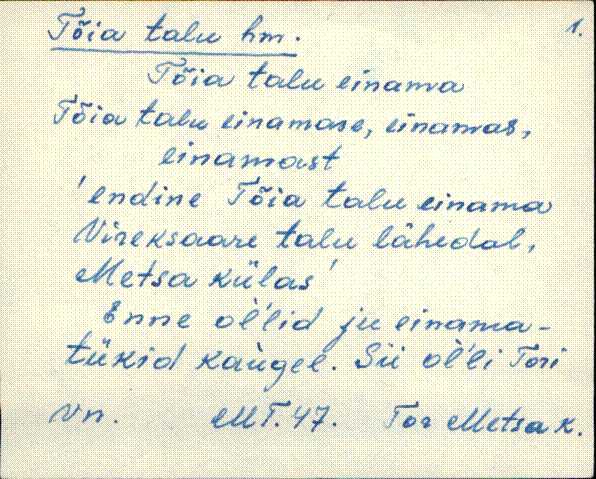 Tõia talu hm. 1.
Tõia talu einama
Tõia talu einamase, einamas,
einamast
'endine Tõia talu einama
Vireksaare talu lähedal,
Metsa külas'
Enne ol'lid ju einama-
tükid kaùgel. Sii ol'li Tori
vn. MT.47. Tor Metsa k.